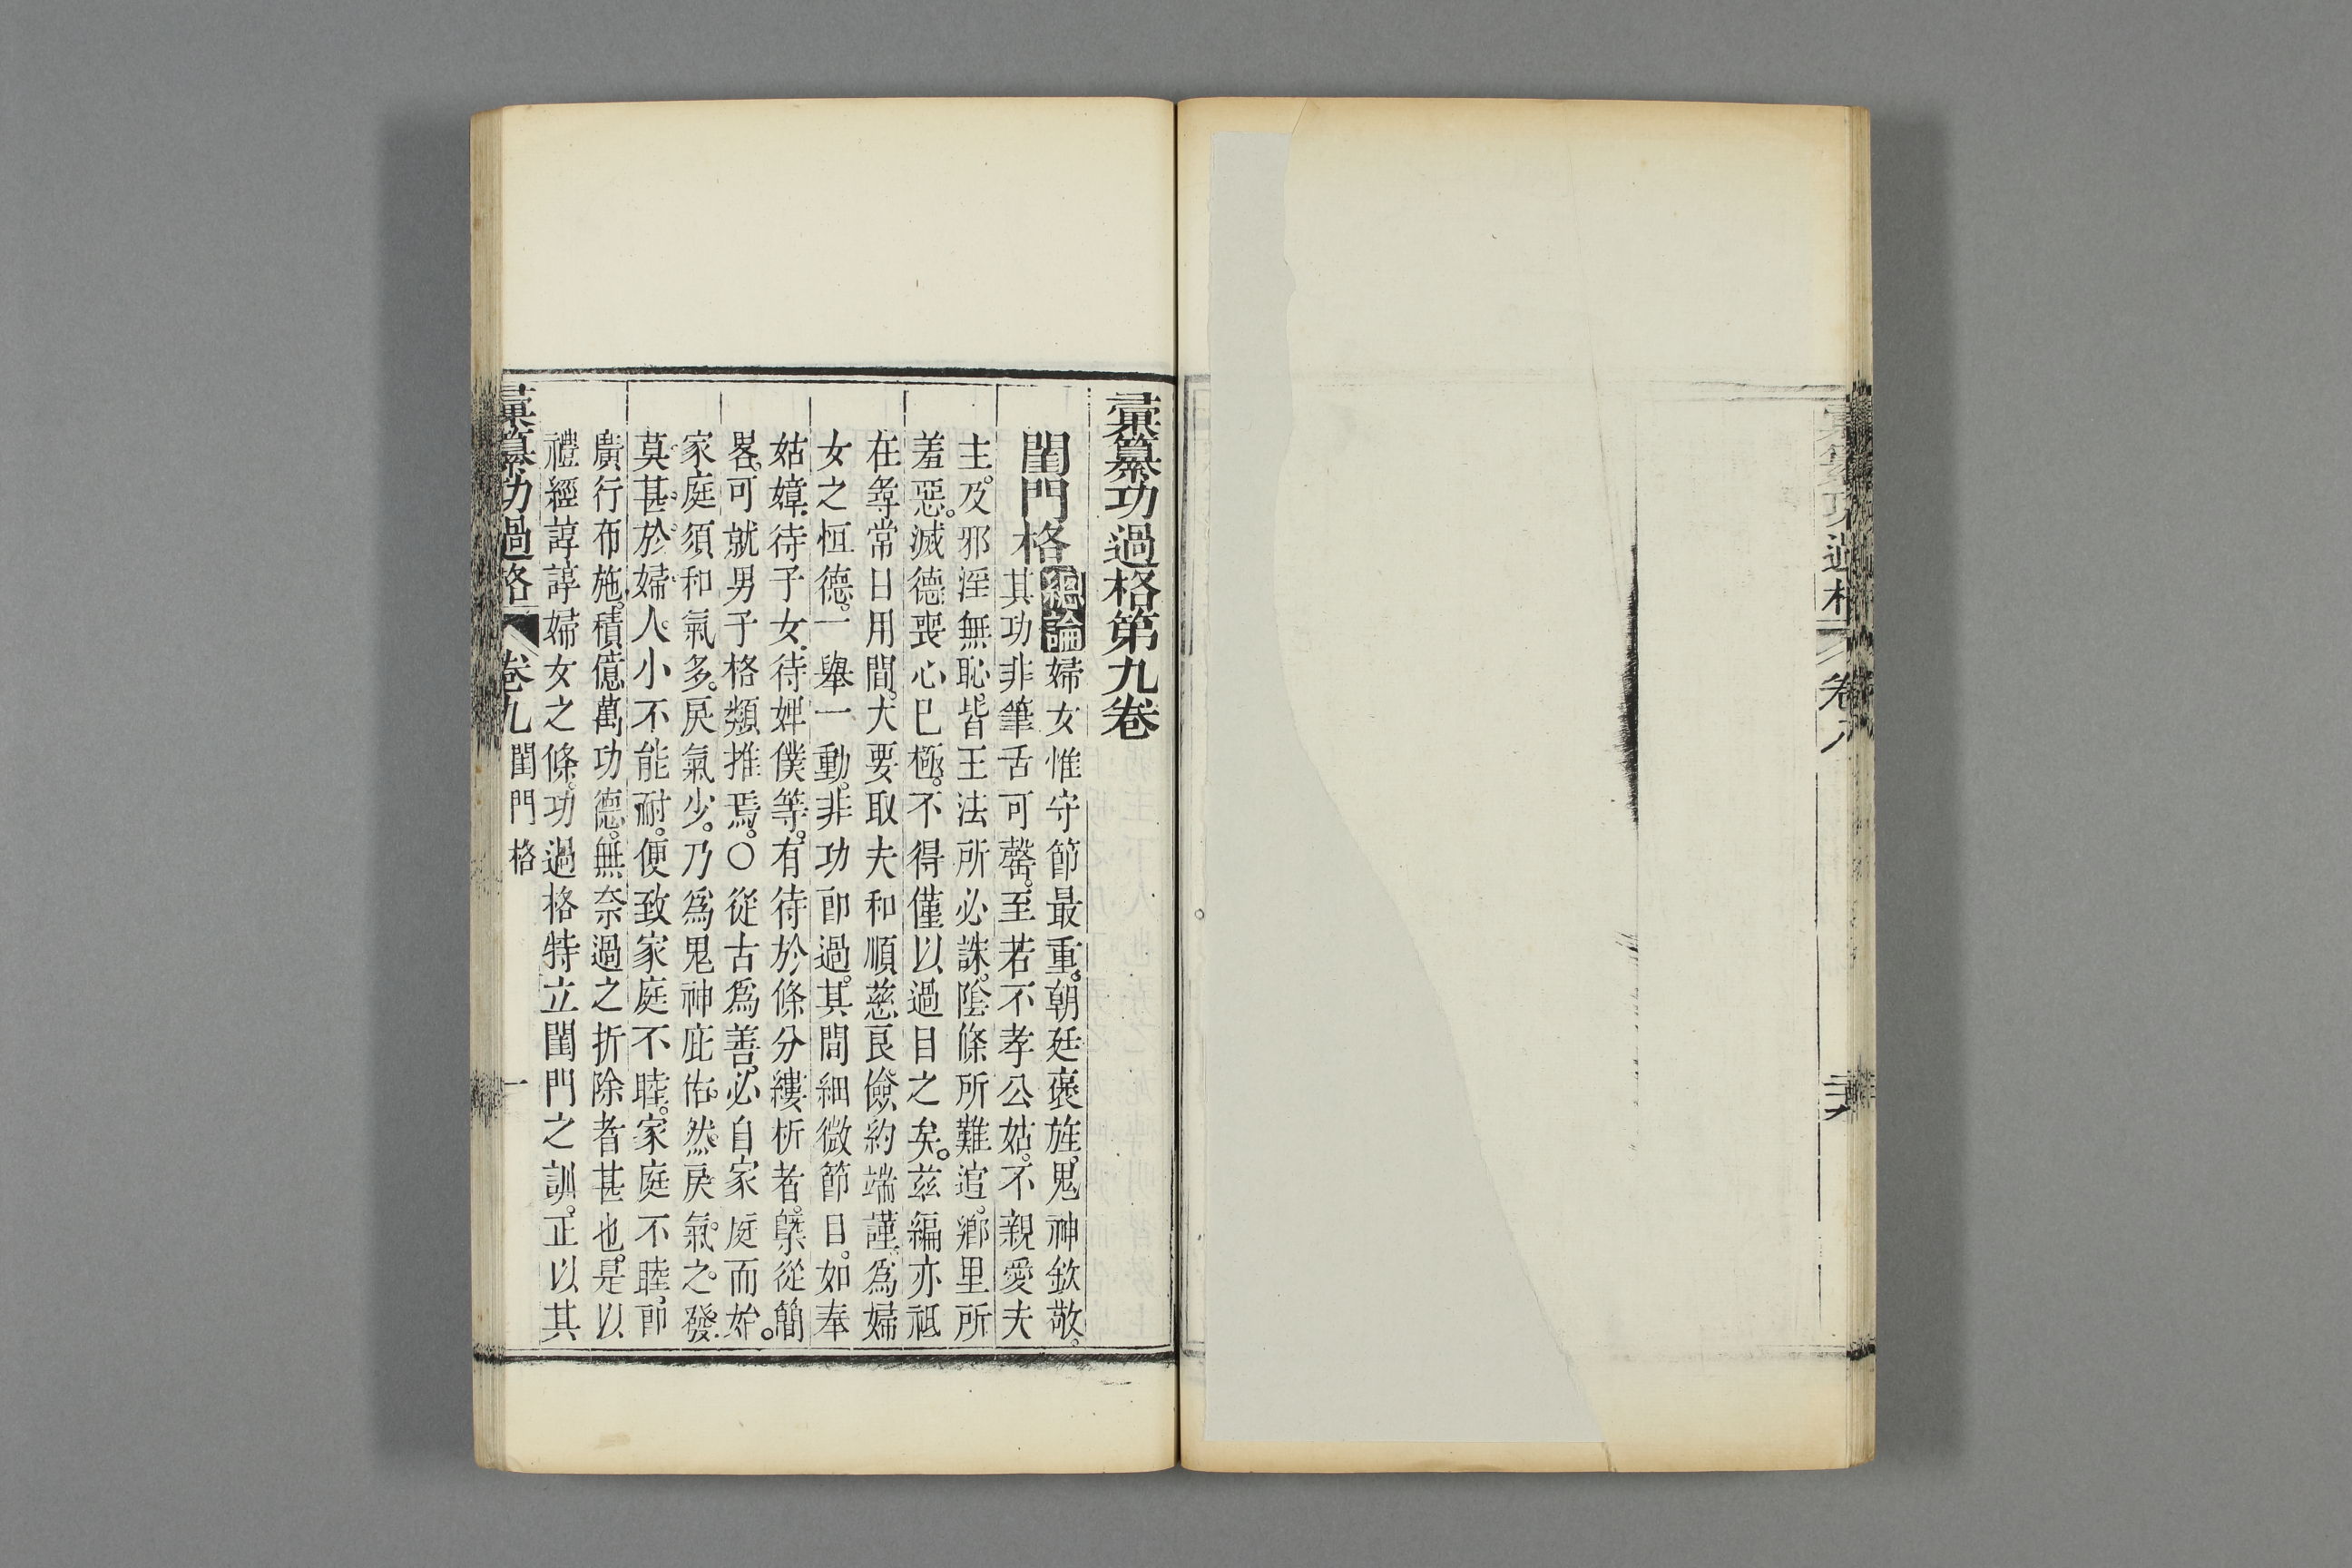 彙纂功過格
卷八
二十六
彙纂功過格第九卷
閨門格
總論婦女惟守節最重。朝廷褒旌。鬼神欽敬。
其功非筆舌可罄。至若不孝公姑。不親愛夫
主。及邪淫無恥。皆王法所必誅。陰條所難逭。鄉里所
羞惡。滅德喪心已極。不得僅以過目之矣。茲編亦祗
在尋常日用間。大要取夫和順慈良。儉約端謹。爲婦
女之恒德。一舉一動。非功卽過。其間細微節目。如奉
姑嫜。待子女。待婢僕等。有待於條分縷析者。槩從簡
畧。可就男子格類推焉。〇從古爲善。必自家庭而始。
家庭須和氣多。戾氣少。乃爲鬼神庇佑。然戾氣之發。
莫甚於婦人。小不能耐。便致家庭不睦。家庭不睦。卽
廣行布施。積億萬功德。無奈過之折除者甚也。是以
禮經諄諄婦女之條。功過格特立閨門之訓。正以其
彙纂功過格
卷九
閨門格
一